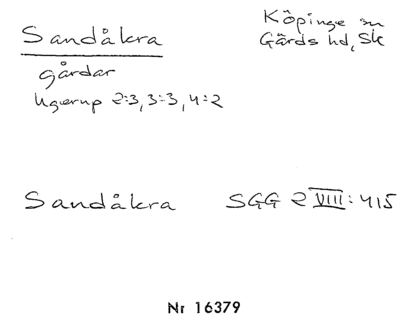 Sandåkra
Köpinge sn
Gärds hd, Sk
gårdar
Ugerup 2:3, 3:3, 4:2
Sandåkra SGG 2 VIII: 415
Nr 16379